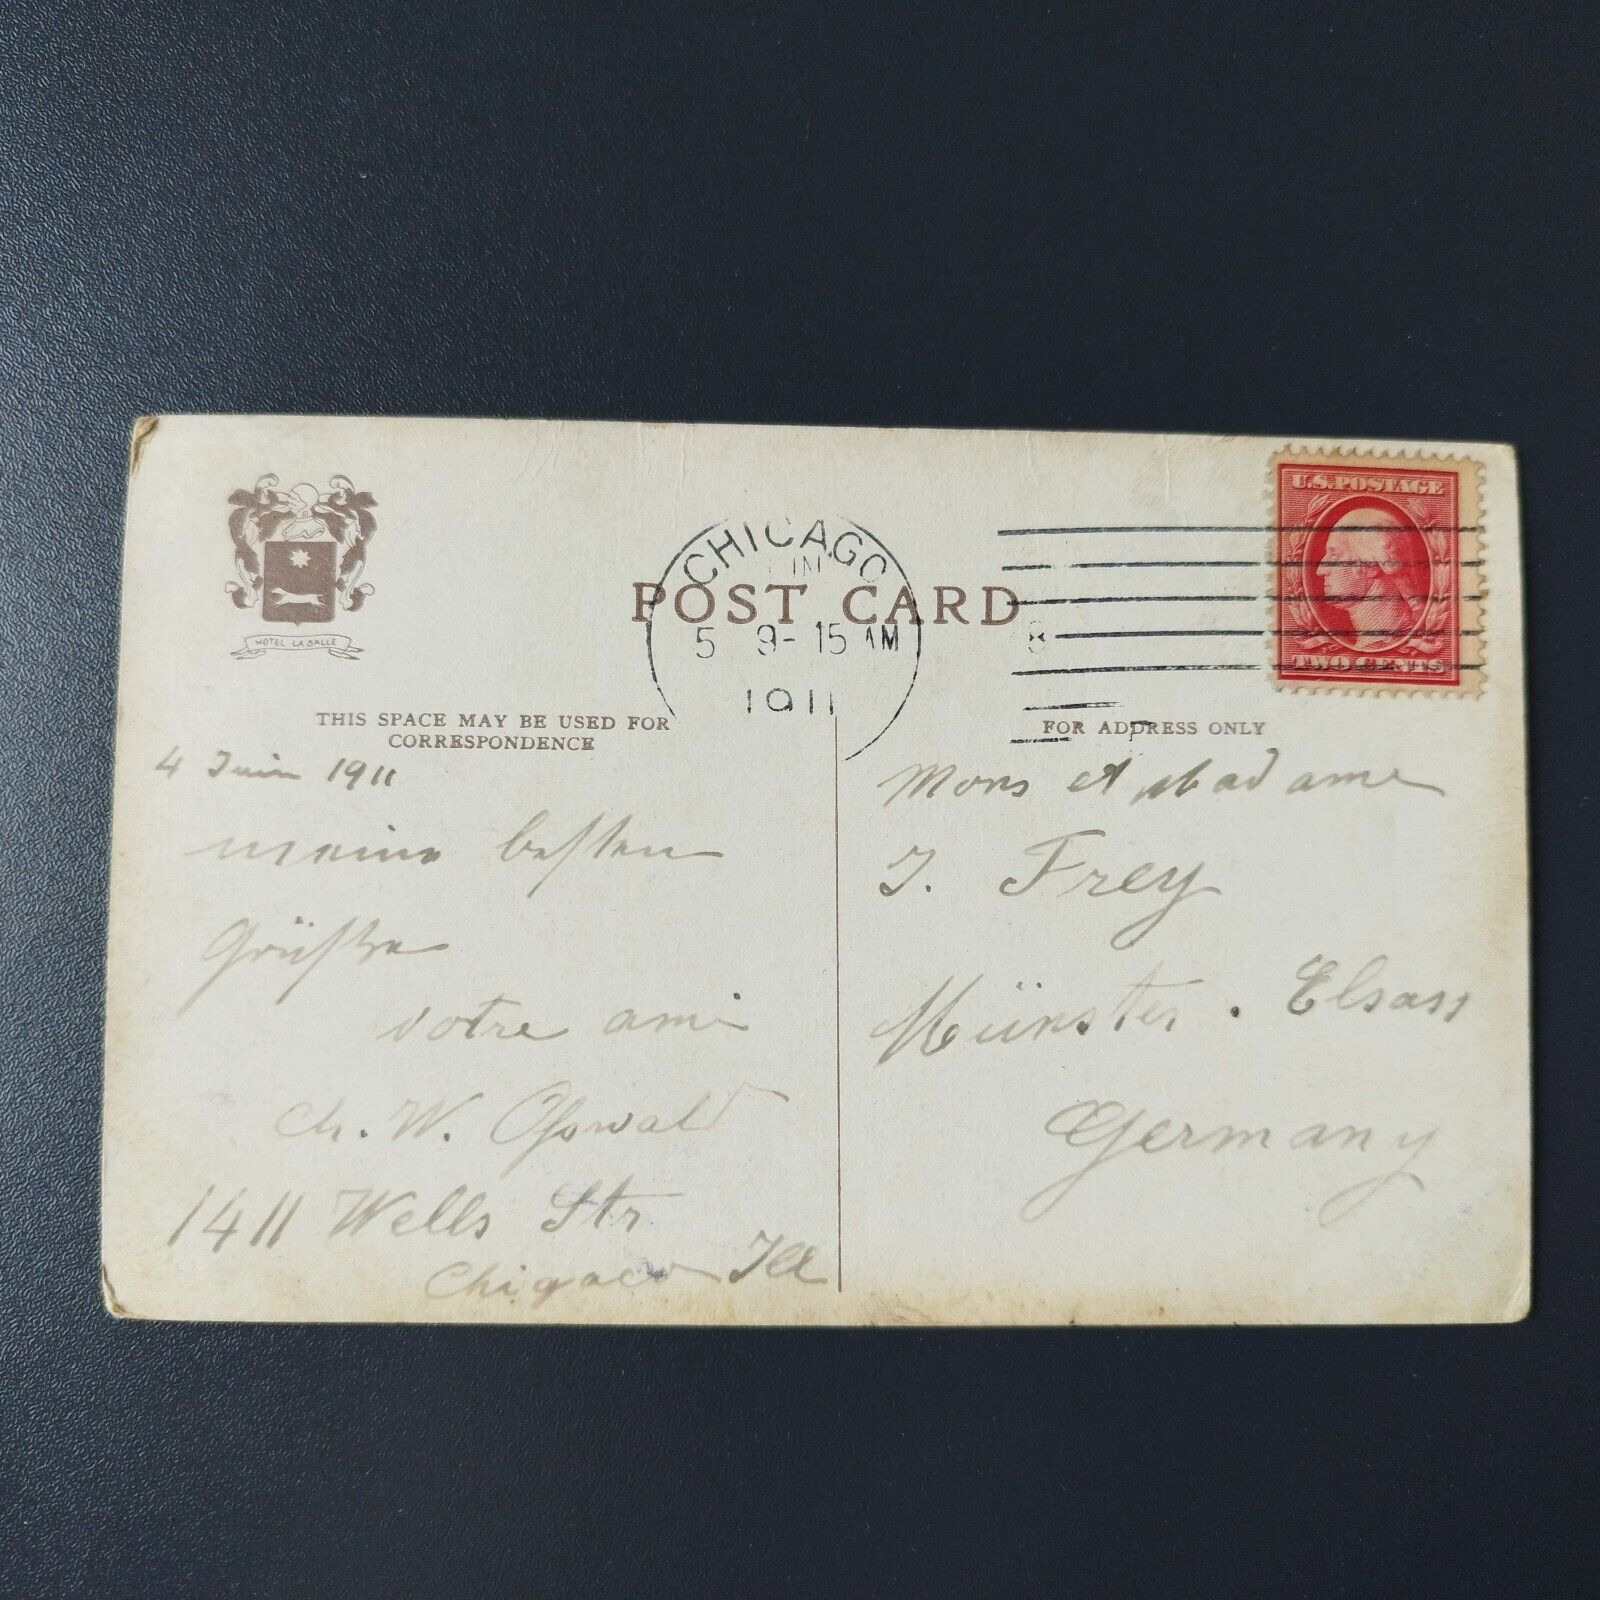 HOTEL LA SALLE
POST CARD
CHICAGO
5 9-15 AM
1911
U.S. POSTAGE
TWO CENTS
THIS SPACE MAY BE USED FOR
CORRESPONDENCE
4 Juin 1911
meine besten
Grüße
votre ami
Ch. W. Oswald
1411 Wells Str
Chigaco Ill
FOR ADDRESS ONLY
Mons et Madame
J. Frey
Münster. Elsass
Germany